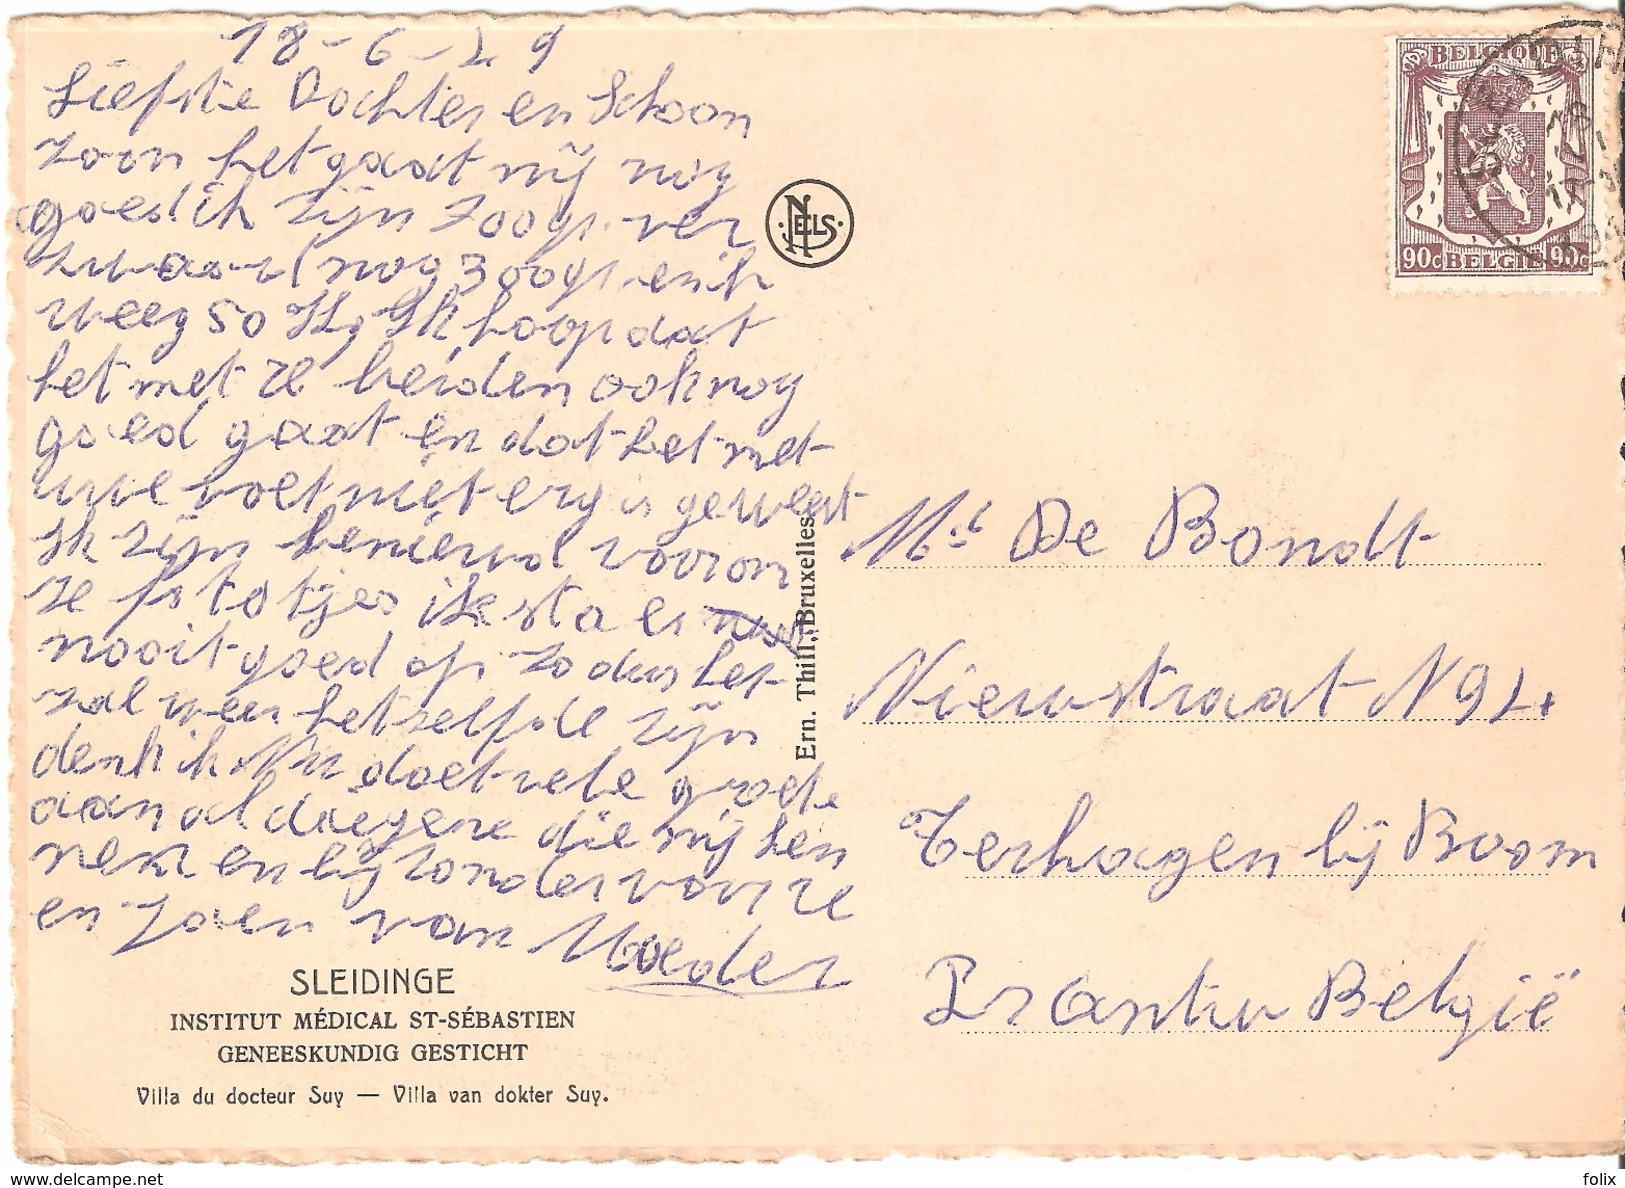 18-6-49
Liefste Dochter en Schoon
zoon het gaat mij nog
goed ik zijn 700gr. ver
zwaard nog 300gr. en ik
weeg 50 Kg Ik hoop dat
het met ze beiden ook nog
goed gaat en dat het met
uwe voet niet erg is geweest
Ik zijn benieuwd voor om
ze fototjes ik sta er
nooit goed op zo dus het
zal weer het zelfde zijn
denk ik Nu doet vele groete
aan al diegene die mij ken
nen en bijzonder voor ze
en zoen van Moeder
SLEIDINGE
INSTITUT MÉDICAL ST-SÉBASTIEN
GENEESKUNDIG GESTICHT
Villa du docteur Suy — Villa van dokter Suy.
NELS
Ern. Thill, Bruxelles
BELGIQUE
90c BELGIE 90c
Mr De Bondt
Nieuwstraat N 94
Terhagen bij Boom
België
folix